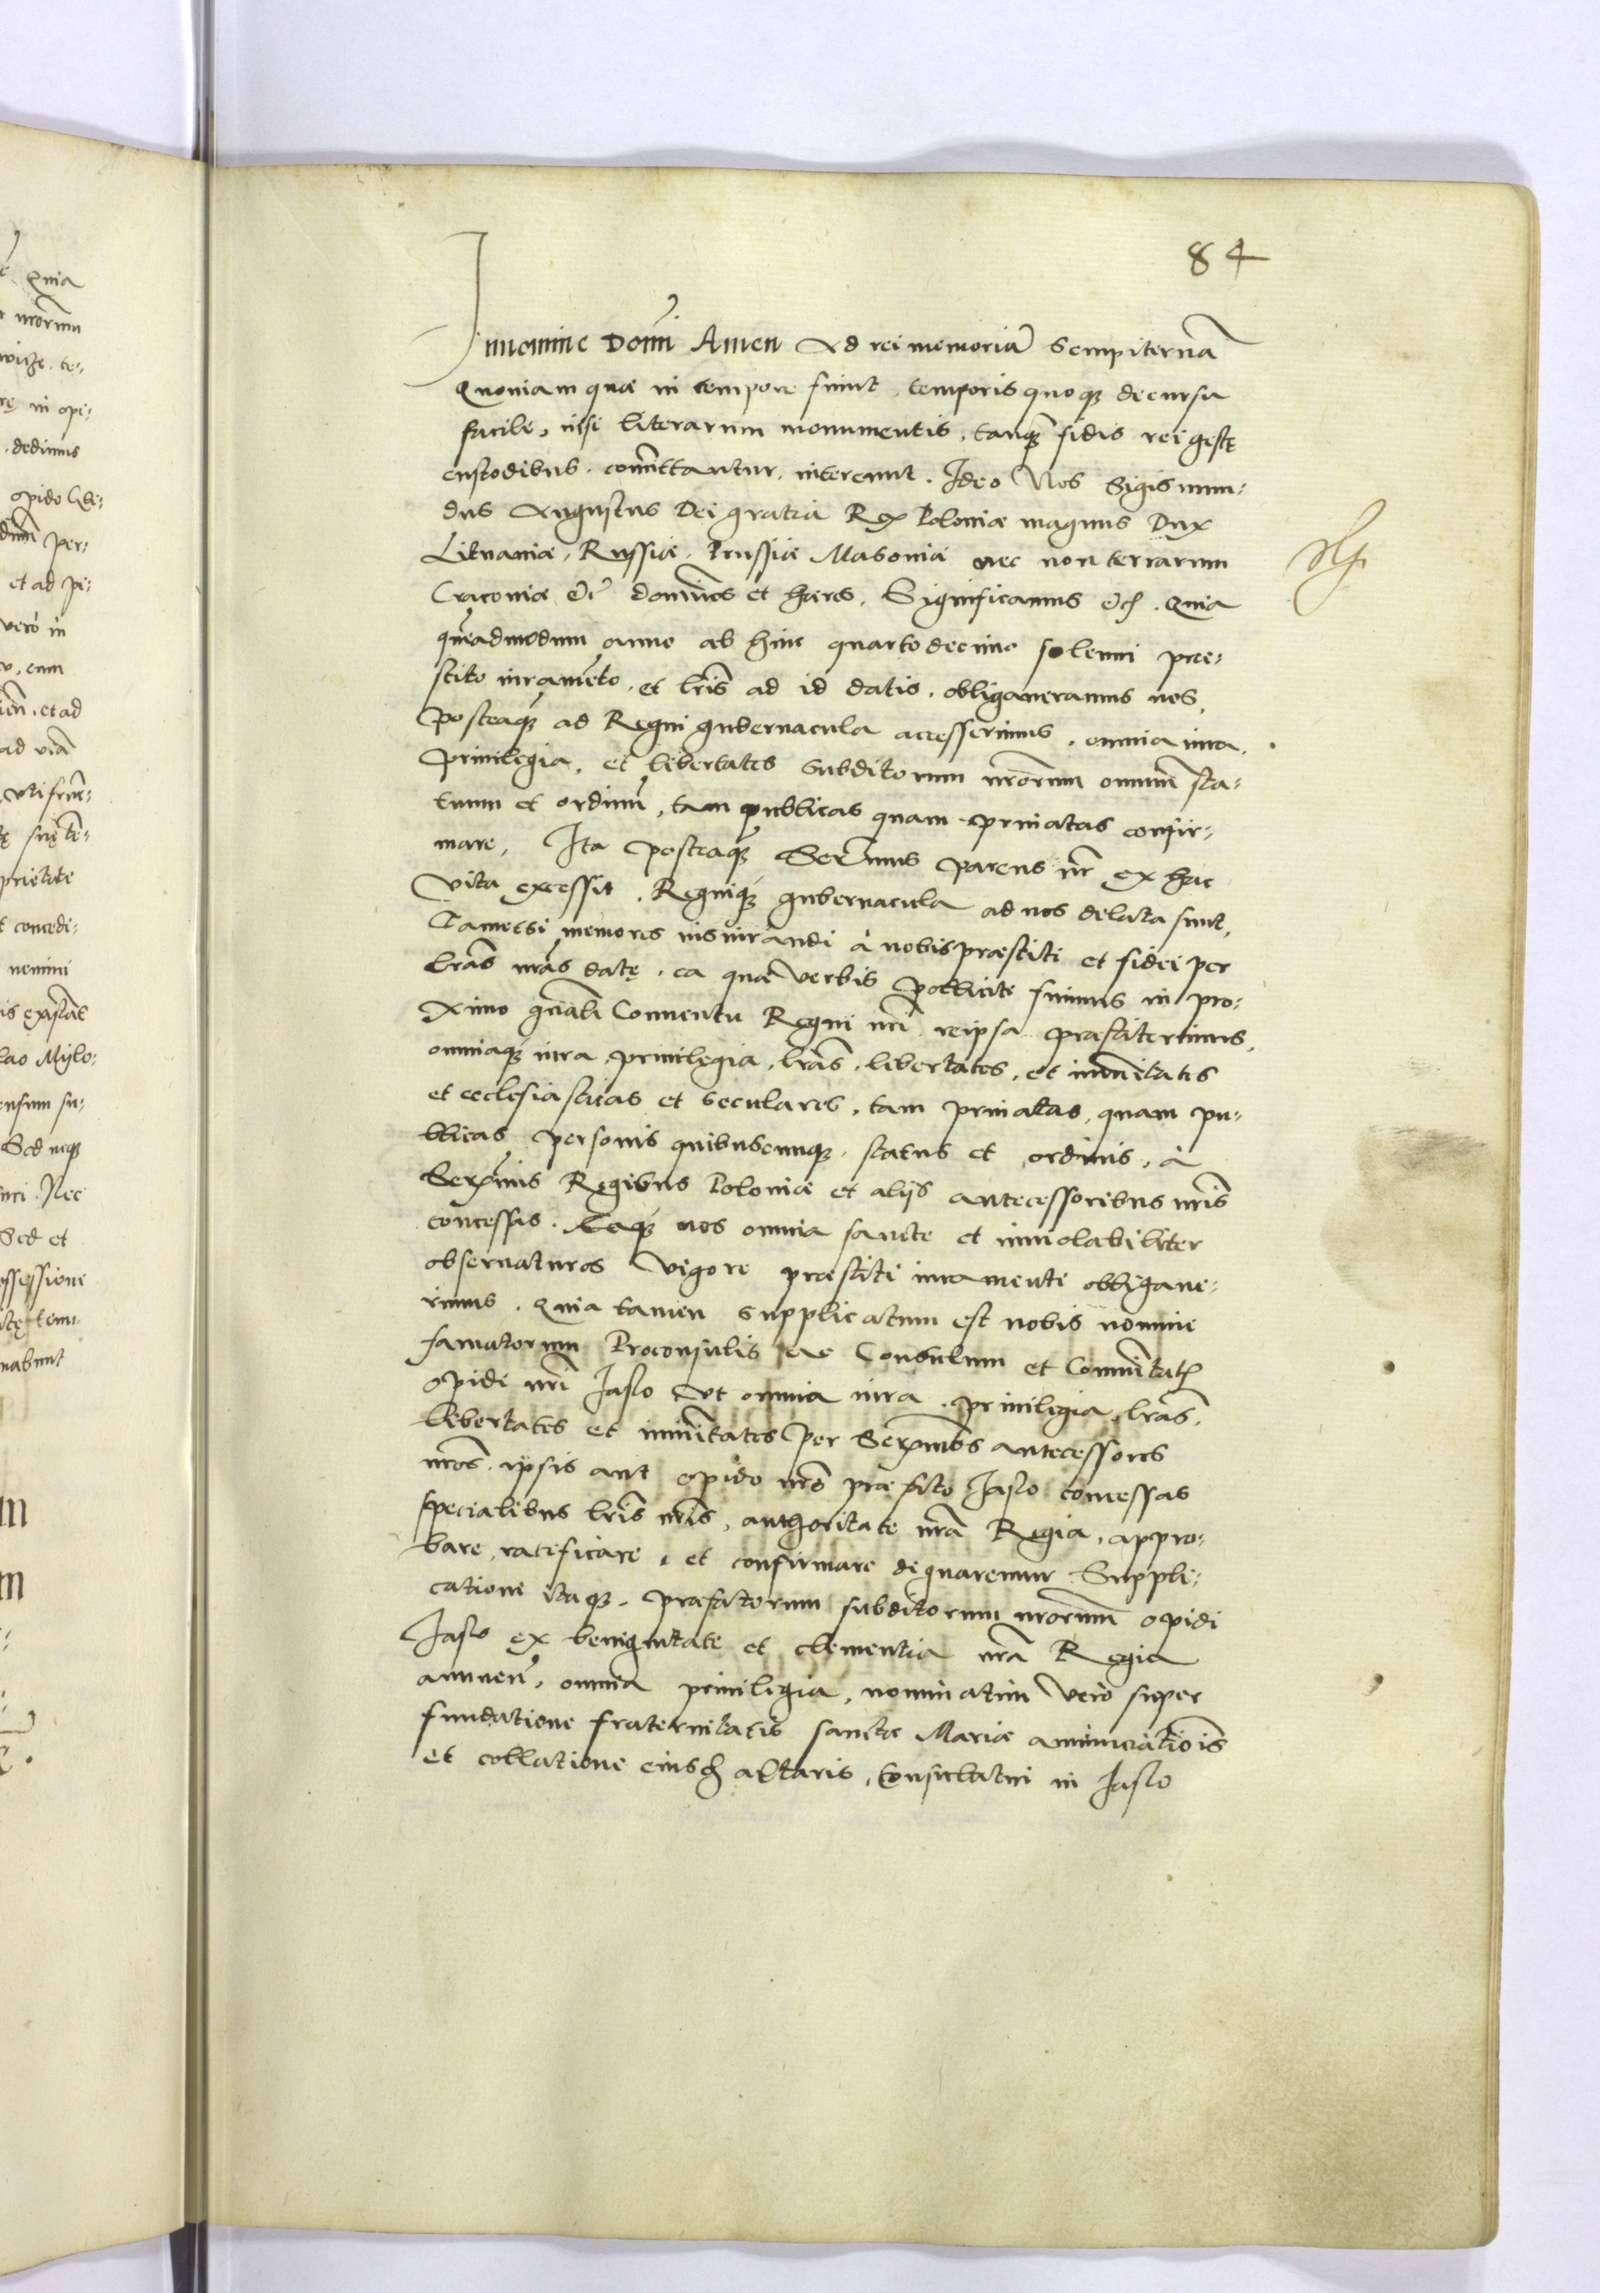 84
In nomine Domi Amen Ad rei memoriā Sempiternā
Quoniam quæ in tempore fiunt, temporis quoq; decursu
facile, nisi literarum monumentis, tanq; fidis rei gestę
custodibus, comittantur, intereunt. Ideo Nos Sigismun-
dus Augustus Dei gratia Rex Poloniæ magnus Dux
Lituaniæ, Russiæ, Prussiæ Masoviæ nec non terrarum
Cracoviæ etc̃ dominus et hæres, Significamus etc. Quia
quēadmodum anno ab hinc quarto decimo solemni præ-
stito iuramēto, et lr̃is ad id datis, obligaveramus nos,
posteaq; ad Regni gubernacula accesserimus, omnia iura,
privilegia, et libertates subditorum nr̃orum omnium sta-
tuum et ordinũ, tam publicas quam privatas confir-
mare, Ita posteaq; Ser̃imus parens nr̃ ex hac
vita excessit, Regniq; gubernacula ad nos delata sunt,
Tametsi memores iusiurandi à nobis præstiti et fidei per
lrãs nrãs datę, ea quæ verbis polliciti fuimus in pro-
ximo gñali Conventu Regni nr̃i reipsa præstiterimus,
omniaq; iura, privilegia, lrãs, libertates, et imunitates
et ecclesiasticas et seculares, tam privatas, quam pu-
blicas personis quibuscunq; status et ordinis, à
Sere͂mis Regibus Poloniæ et alijs antecessoribus nr̃is
concessis. Eaq; nos omnia sancte et inviolabiliter
observaturos vigore præstiti iuramenti obligave-
rimus. Quia tamen supplicatum est nobis nomine
famatorum Proconsulis ac Consulum et Comunitat̃
opidi nr̃i Jaslo ut omnia iura, privilegia, lrãs,
libertates et imunitates per Sere͂mos antecessores
nr̃os, ipsis aut opido nr̃o præfato Jaslo concessas
specialibus lr̃is nr̃is, authoritate nr̃a Regia, appro-
bare, ratificare, et confirmare dignaremur. Suppli-
catione itaq; præfatorum subditorum nr̃orum opidi
Jaslo ex benignitate et clementia nr̃a Regia
annuen̄, omnia privilegia, nominatim vero super
fundatione fraternitatis sanctæ Mariæ annunciatiõis
et collatione eiusd altaris, Consulatui in Jaslo